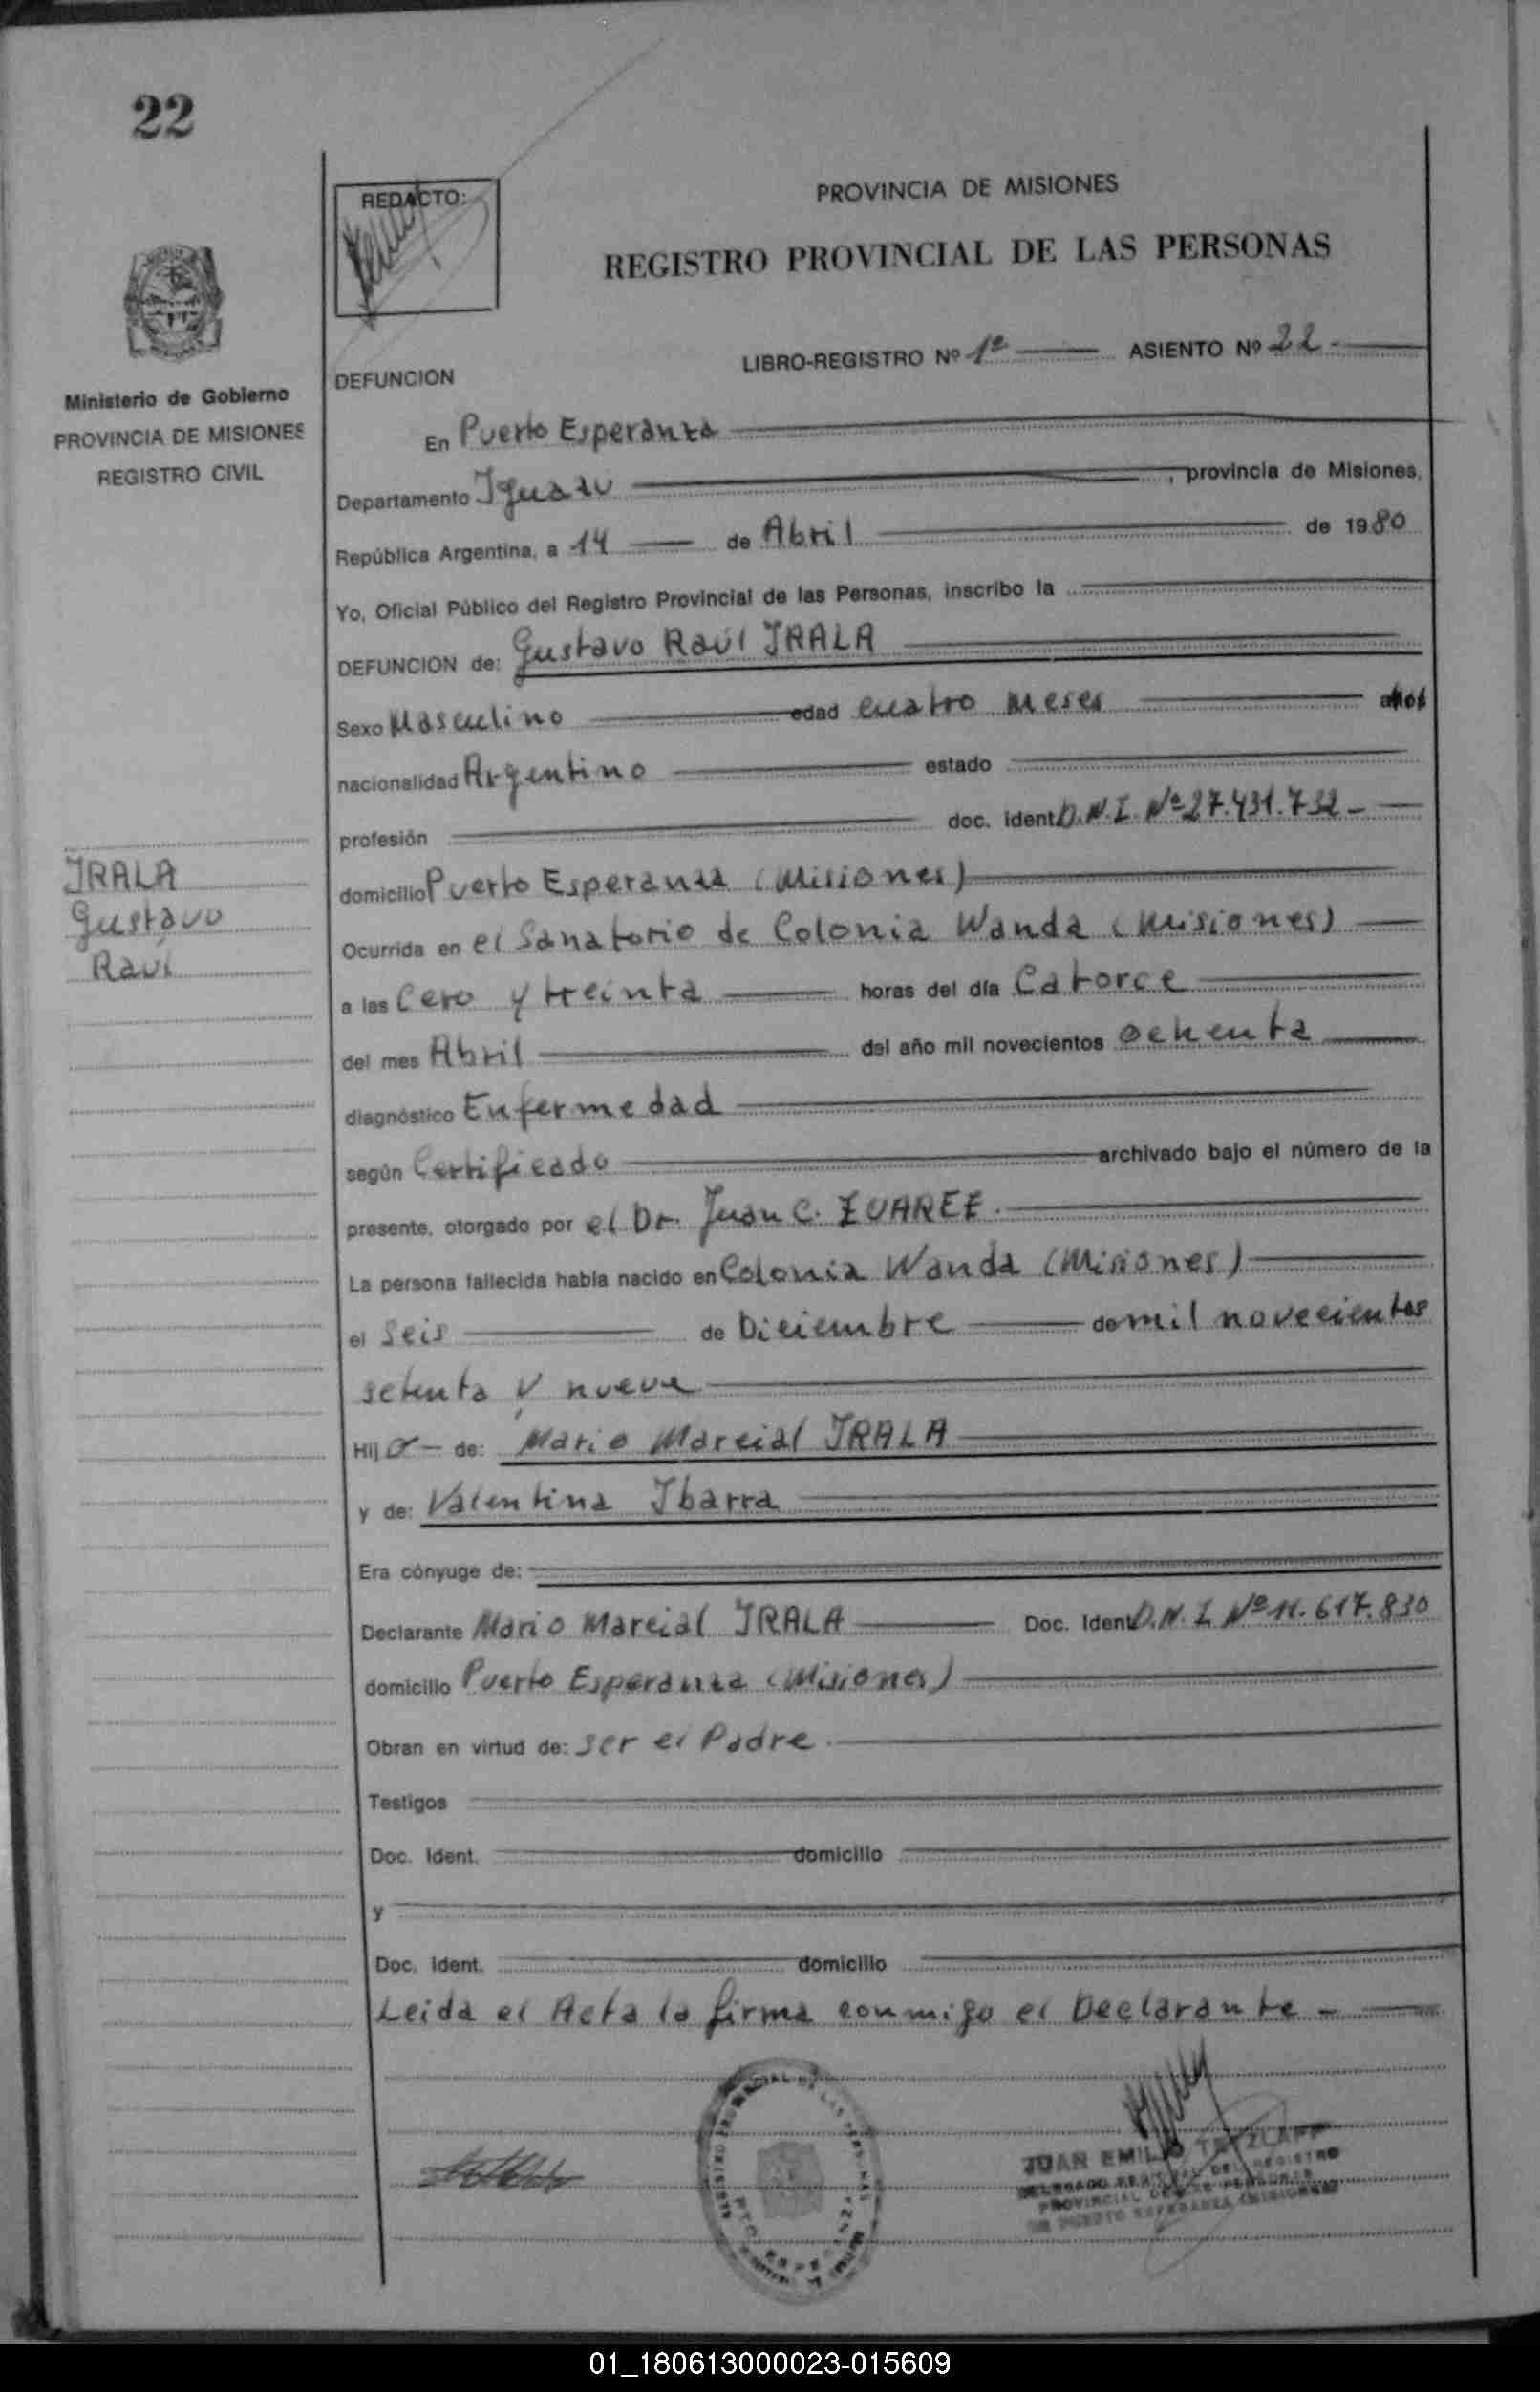 22
REDACTO:
PROVINCIA DE MISIONES
REGISTRO PROVINCIAL DE LAS PERSONAS
LIBRO-REGISTRO Nº 1º ASIENTO Nº 22.
Ministerio de Gobierno
PROVINCIA DE MISIONES
REGISTRO CIVIL
DEFUNCION
En Puerto Esperanza
Departamento Iguazu, provincia de Misiones,
República Argentina, a 14 de Abril de 1980
Yo, Oficial Público del Registro Provincial de las Personas, inscribo la
DEFUNCION de: Gustavo Raúl IRALA
Sexo Masculino edad cuatro meses años
nacionalidad Argentino estado
profesión doc. ident. D.N.I. Nº 27.431.732-
IRALA
Gustavo
Raúl
domicilio Puerto Esperanza (Misiones)
Ocurrida en el Sanatorio de Colonia Wanda (Misiones)
a las Cero y treinta horas del día Catorce
del mes Abril del año mil novecientos ochenta
diagnóstico Enfermedad
según Certificado archivado bajo el número de la
presente, otorgado por el Dr. Juan C. ZUAREZ.
La persona fallecida había nacido en Colonia Wanda (Misiones)
el Seis de Diciembre de mil novecientos
setenta y nueve
Hijo de: Mario Marcial IRALA
y de: Valentina Ibarra
Era cónyuge de:
Declarante Mario Marcial IRALA Doc. Ident. D.N.I Nº 11.617.830
domicilio Puerto Esperanza (Misiones)
Obran en virtud de: ser el Padre.
Testigos
Doc. Ident. domicilio
y
Doc. Ident. domicilio
Leida el Acta la firma conmigo el Declarante -
JUAN EMILIO TETZLAFF
DEL REGISTRO
PROVINCIAL DE LAS PERSONAS
PUERTO ESPERANZA (MISIONES)
01_180613000023-015609